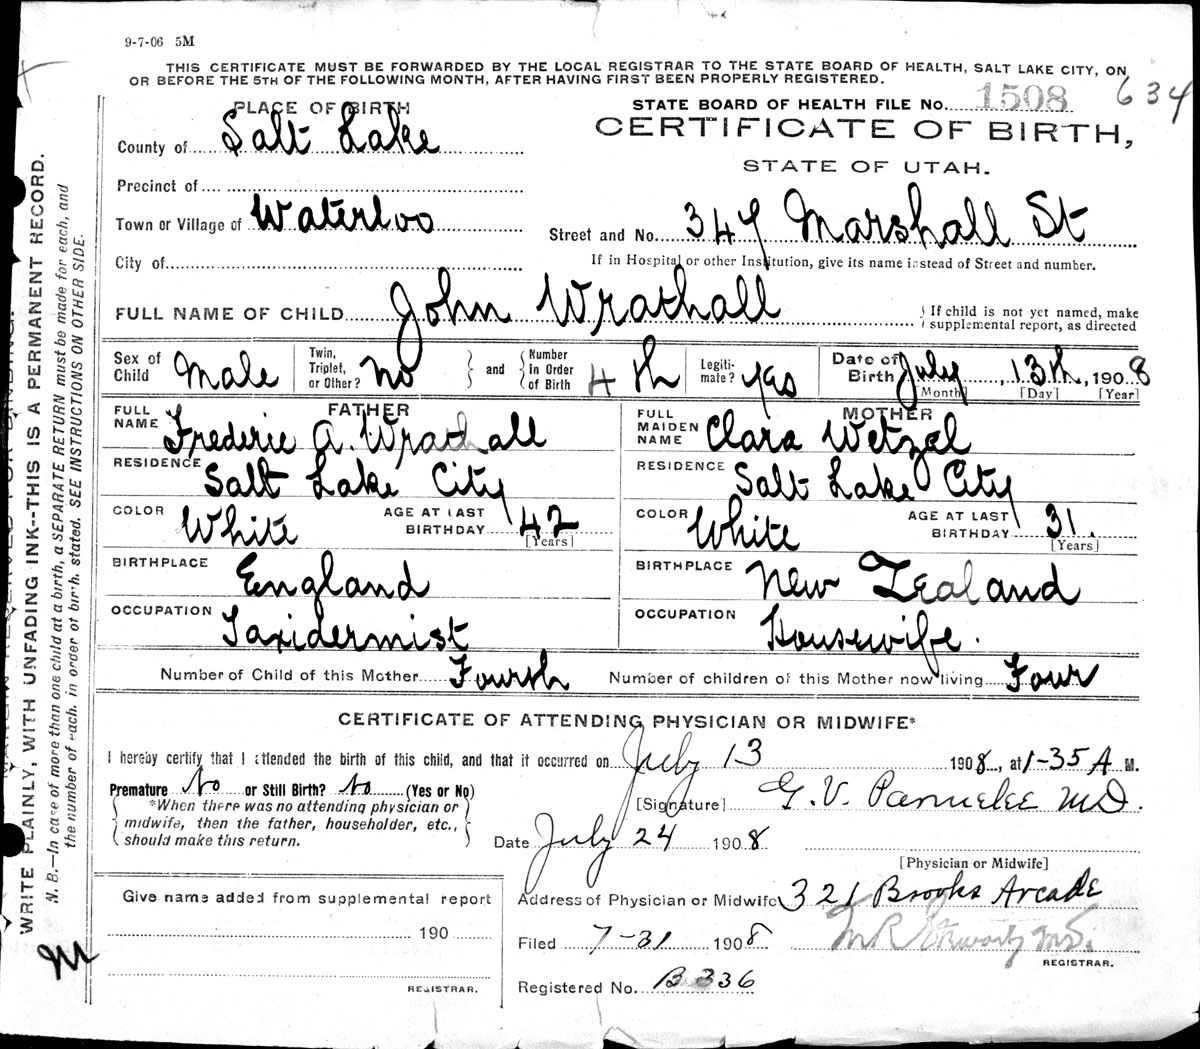 9-7-06 5M
THIS CERTIFICATE MUST BE FORWARDED BY THE LOCAL REGISTRAR TO THE STATE BOARD OF HEALTH, SALT LAKE CITY, ON
OR BEFORE THE 5TH OF THE FOLLOWING MONTH, AFTER HAVING FIRST BEEN PROPERLY REGISTERED.
PLACE OF BIRTH
STATE BOARD OF HEALTH FILE No. 1508 634
CERTIFICATE OF BIRTH,
STATE OF UTAH.
County of Salt Lake
Precinct of
Town or Village of Waterloo
Street and No. 347 Marshall St
City of
If in Hospital or other Institution, give its name instead of Street and number.
FULL NAME OF CHILD John Wrathall
If child is not yet named, make
supplemental report, as directed
Sex of Child Male
Twin, Triplet, or Other? no
and
Number in Order of Birth 4th
Legitimate? yes
Date of Birth July 13th, 1908
[Month] [Day] [Year]
FATHER
FULL NAME Frederic A. Wrathall
RESIDENCE Salt Lake City
COLOR White AGE AT LAST BIRTHDAY 42 [Years]
BIRTHPLACE England
OCCUPATION Taxidermist
MOTHER
FULL MAIDEN NAME Clara Wetzel
RESIDENCE Salt Lake City
COLOR White AGE AT LAST BIRTHDAY 31. [Years]
BIRTHPLACE New Zealand
OCCUPATION Housewife.
Number of Child of this Mother Fourth Number of children of this Mother now living Four
CERTIFICATE OF ATTENDING PHYSICIAN OR MIDWIFE*
I hereby certify that I attended the birth of this child, and that it occurred on July 13 1908, at 1-35 A M.
Premature No or Still Birth? No (Yes or No)
*When there was no attending physician or
midwife, then the father, householder, etc.,
should make this return.
[Signature] G. V. Parmelee M.D.
Date July 24 1908
[Physician or Midwife]
Give name added from supplemental report
190
REGISTRAR.
Address of Physician or Midwife 321 Brooks Arcade
Filed 7-31 1908
REGISTRAR.
Registered No. B 336
WRITE PLAINLY, WITH UNFADING INK--THIS IS A PERMANENT RECORD.
N. B.—In case of more than one child at a birth, a SEPARATE RETURN must be made for each, and
the number of each, in order of birth, stated. SEE INSTRUCTIONS ON OTHER SIDE.